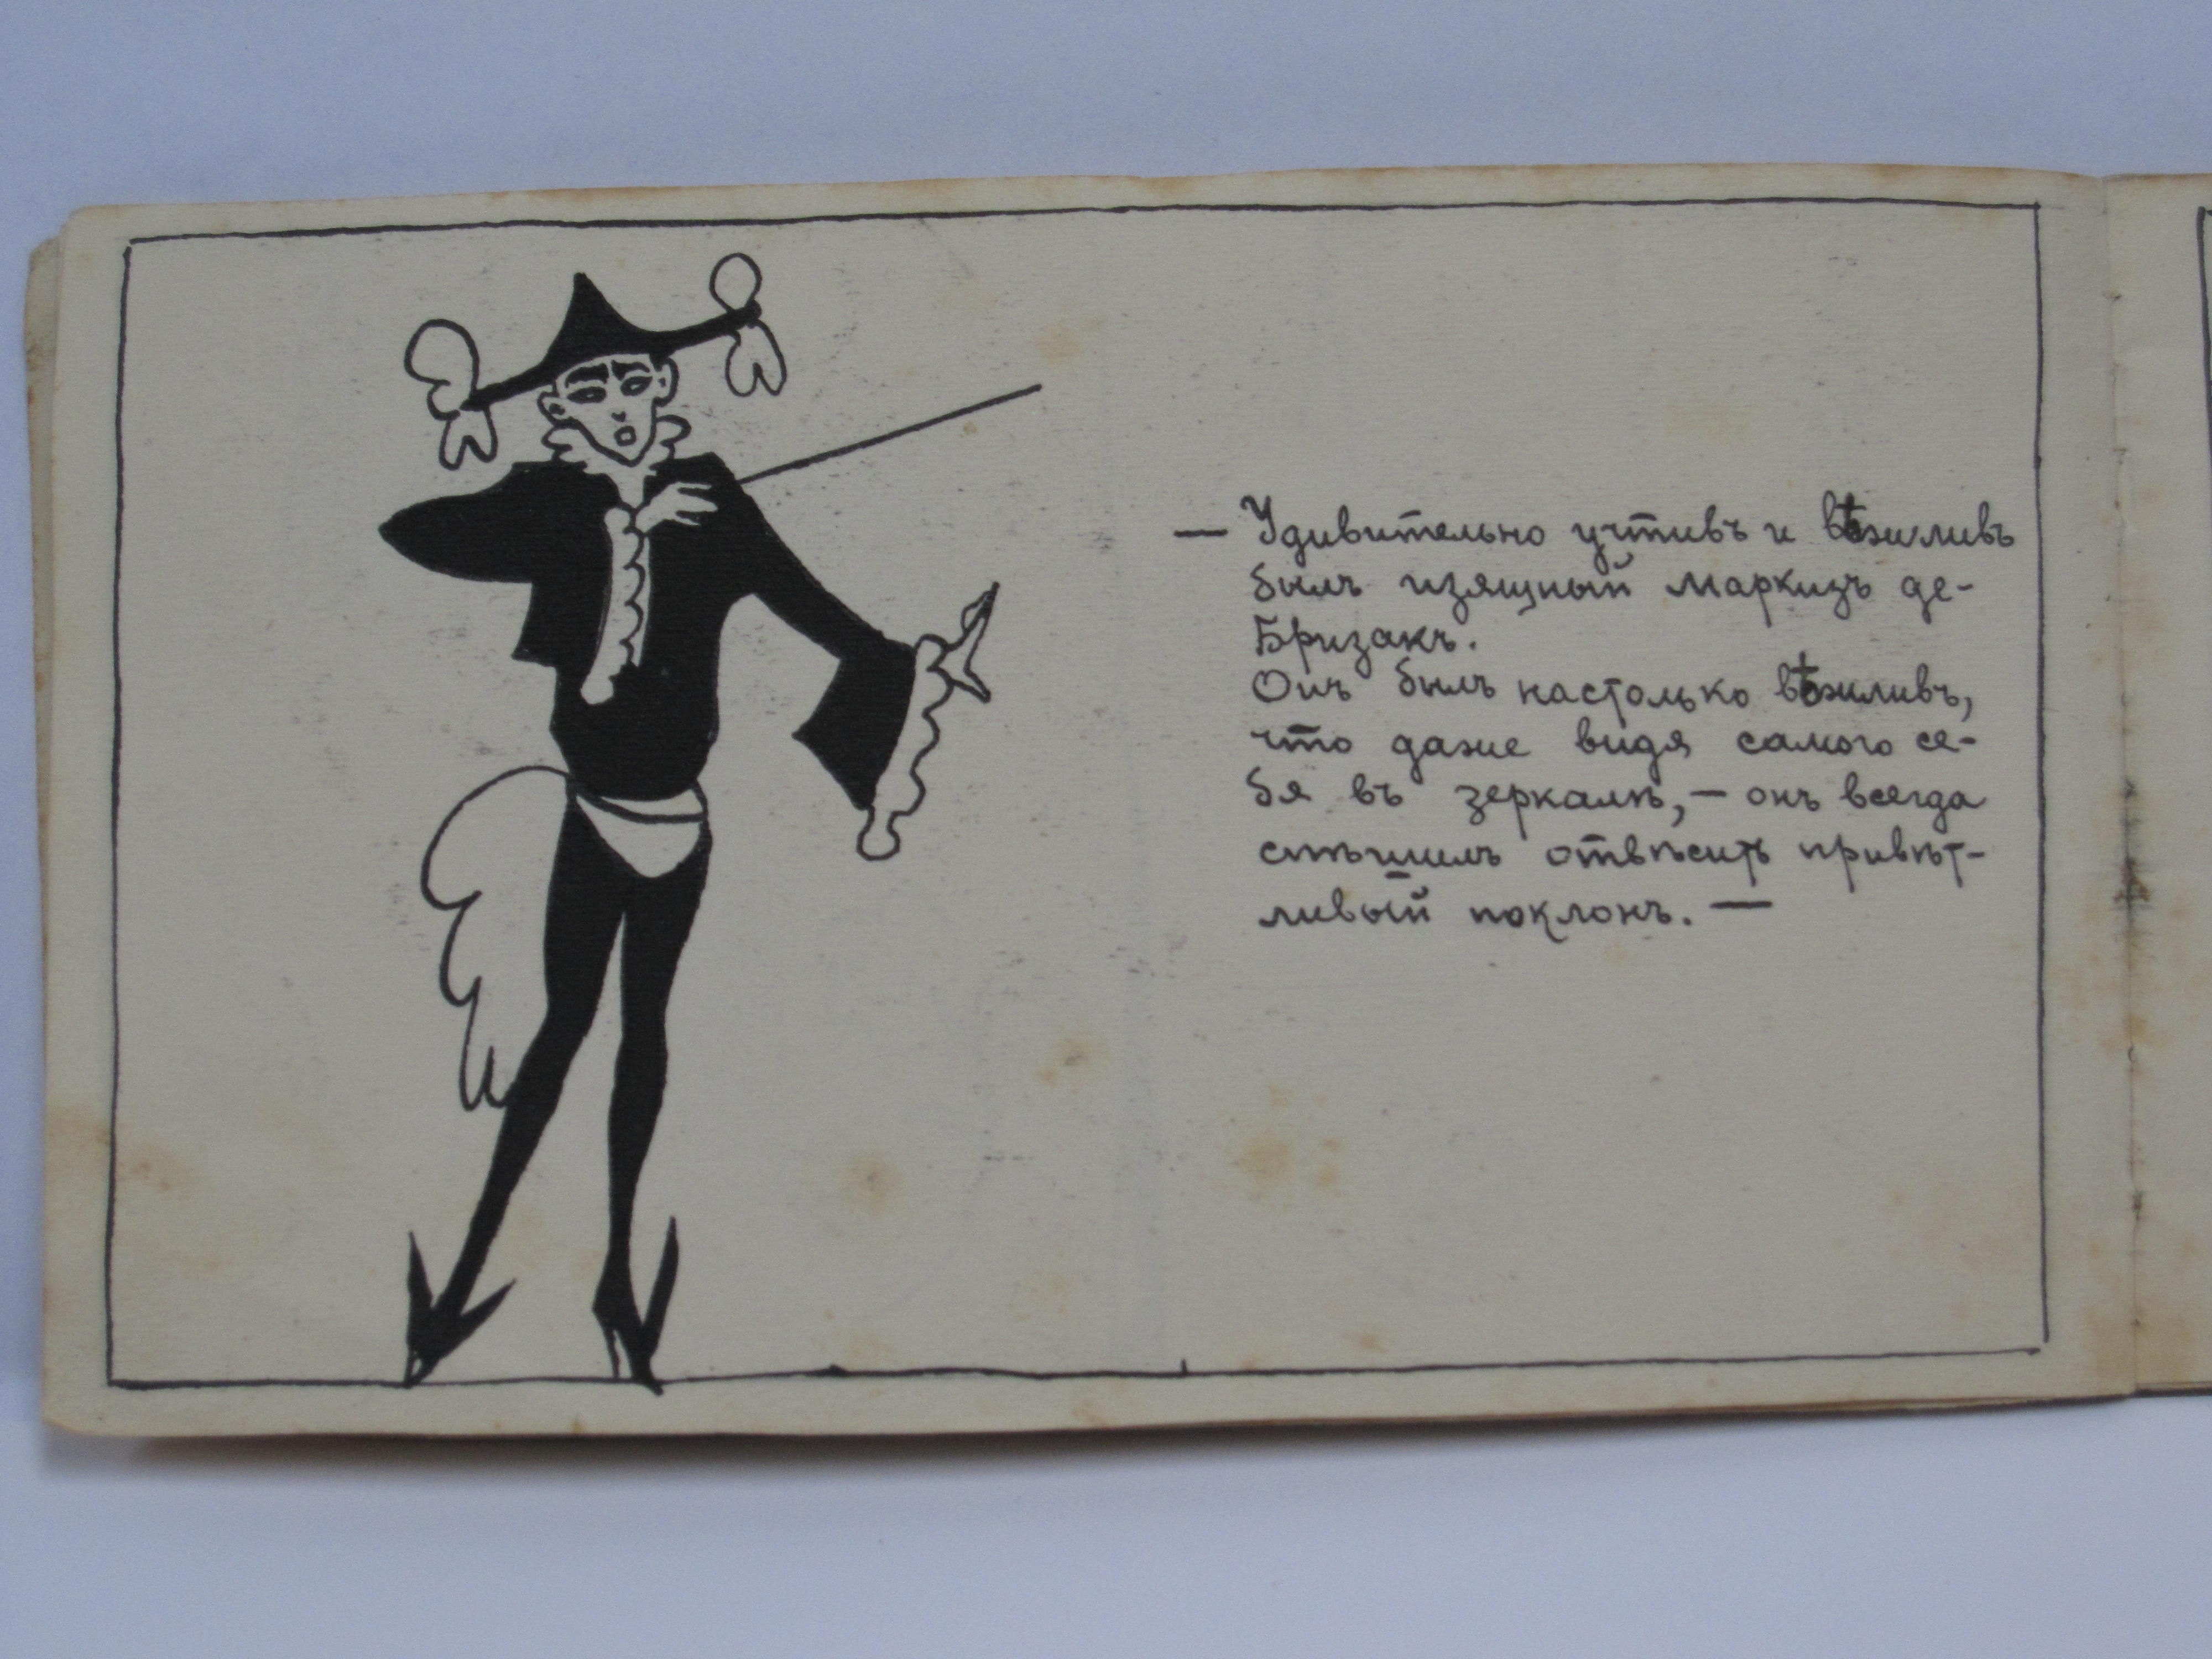 — Удивительно учтивъ и вѣжливъ
былъ изящный маркизъ де-
Бризакъ.
Онъ былъ настолько вѣжливъ,
что даже видя самого се-
бя въ зеркалѣ, — онъ всегда
спѣшилъ отвѣсить привѣт-
ливый поклонъ. —